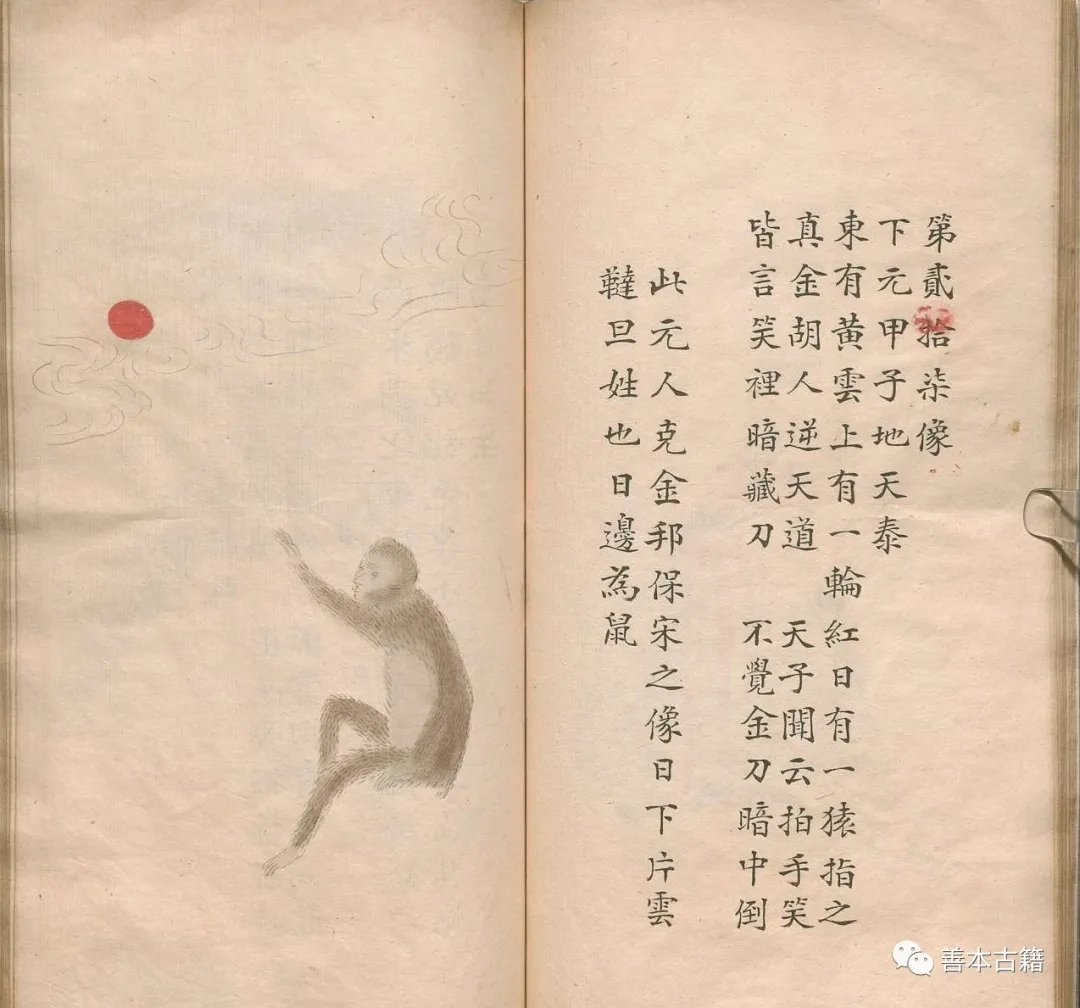 第貳拾柒像
下元甲子地天泰
東有黃雲上有一輪紅日有一猿指之
真金胡人逆天道 天子聞云拍手笑
皆言笑裡暗藏刀 不覺金刀暗中倒
此元人克金邦保宋之像日下片雲
韃旦姓也日邊為鼠
善本古籍